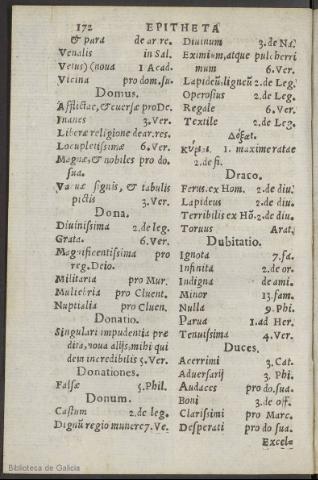 172 EPITHETA
& para de ar. re.
Venalis in Sal.
Vetus) (noua 1 Acad.
Vicina pro dom. su.
Domus.
Afflictae, & euersae pro De.
Inanes 3. Ver.
Liberae religione de ar. res.
Locupletissimae 6. Ver.
Magnae, & nobiles pro do.
sua.
signis, & tabulis
pictis 3. Ver.
Dona.
Diuinissima 2. de leg.
Grata. 6. Ver.
Magnificentissima pro
reg. Deio.
Militaria pro Mur.
Muliebria pro Cluent.
Nuptialia pro Cluen.
Donatio.
Singulari impudentia præ
dita, noua alijs, mihi qui
dem incredibilis 5. Ver.
Donationes.
Falsæ 5. Phil.
Donum.
Castum 2. de leg.
Dignũ regio munere 7. Ve.
Diuinum 3. de Na.
Eximium, atque pulcherri
mum 6. Ver.
Lapideũ. ligneũ 2. de Leg.
Operosius 2. de Leg.
Regale 6. Ver.
Textile 2. de Leg.
Δόξαι.
Κύριαι. 1. maxime ratae
2. de fi.
Draco.
Ferus. ex Hom. 2. de diu.
Lapideus 2. de diu.
Terribilis ex Hõ. 2. de diu.
Toruus Arat.
Dubitatio.
Ignota 7. fa.
Infinita 2. de or.
Indigna de ami.
Minor 13. fam.
Nulla 9. Phi.
Parua 1. ad Her.
Tenuissima 4. Ver.
Duces.
Acerrimi 3. Cat.
Aduersarij 3. Phi.
Audaces pro do. sua.
Boni 3. de off.
Clarissimi pro Marc.
Desperati pro do sua.
Excel-
Biblioteca de Galicia